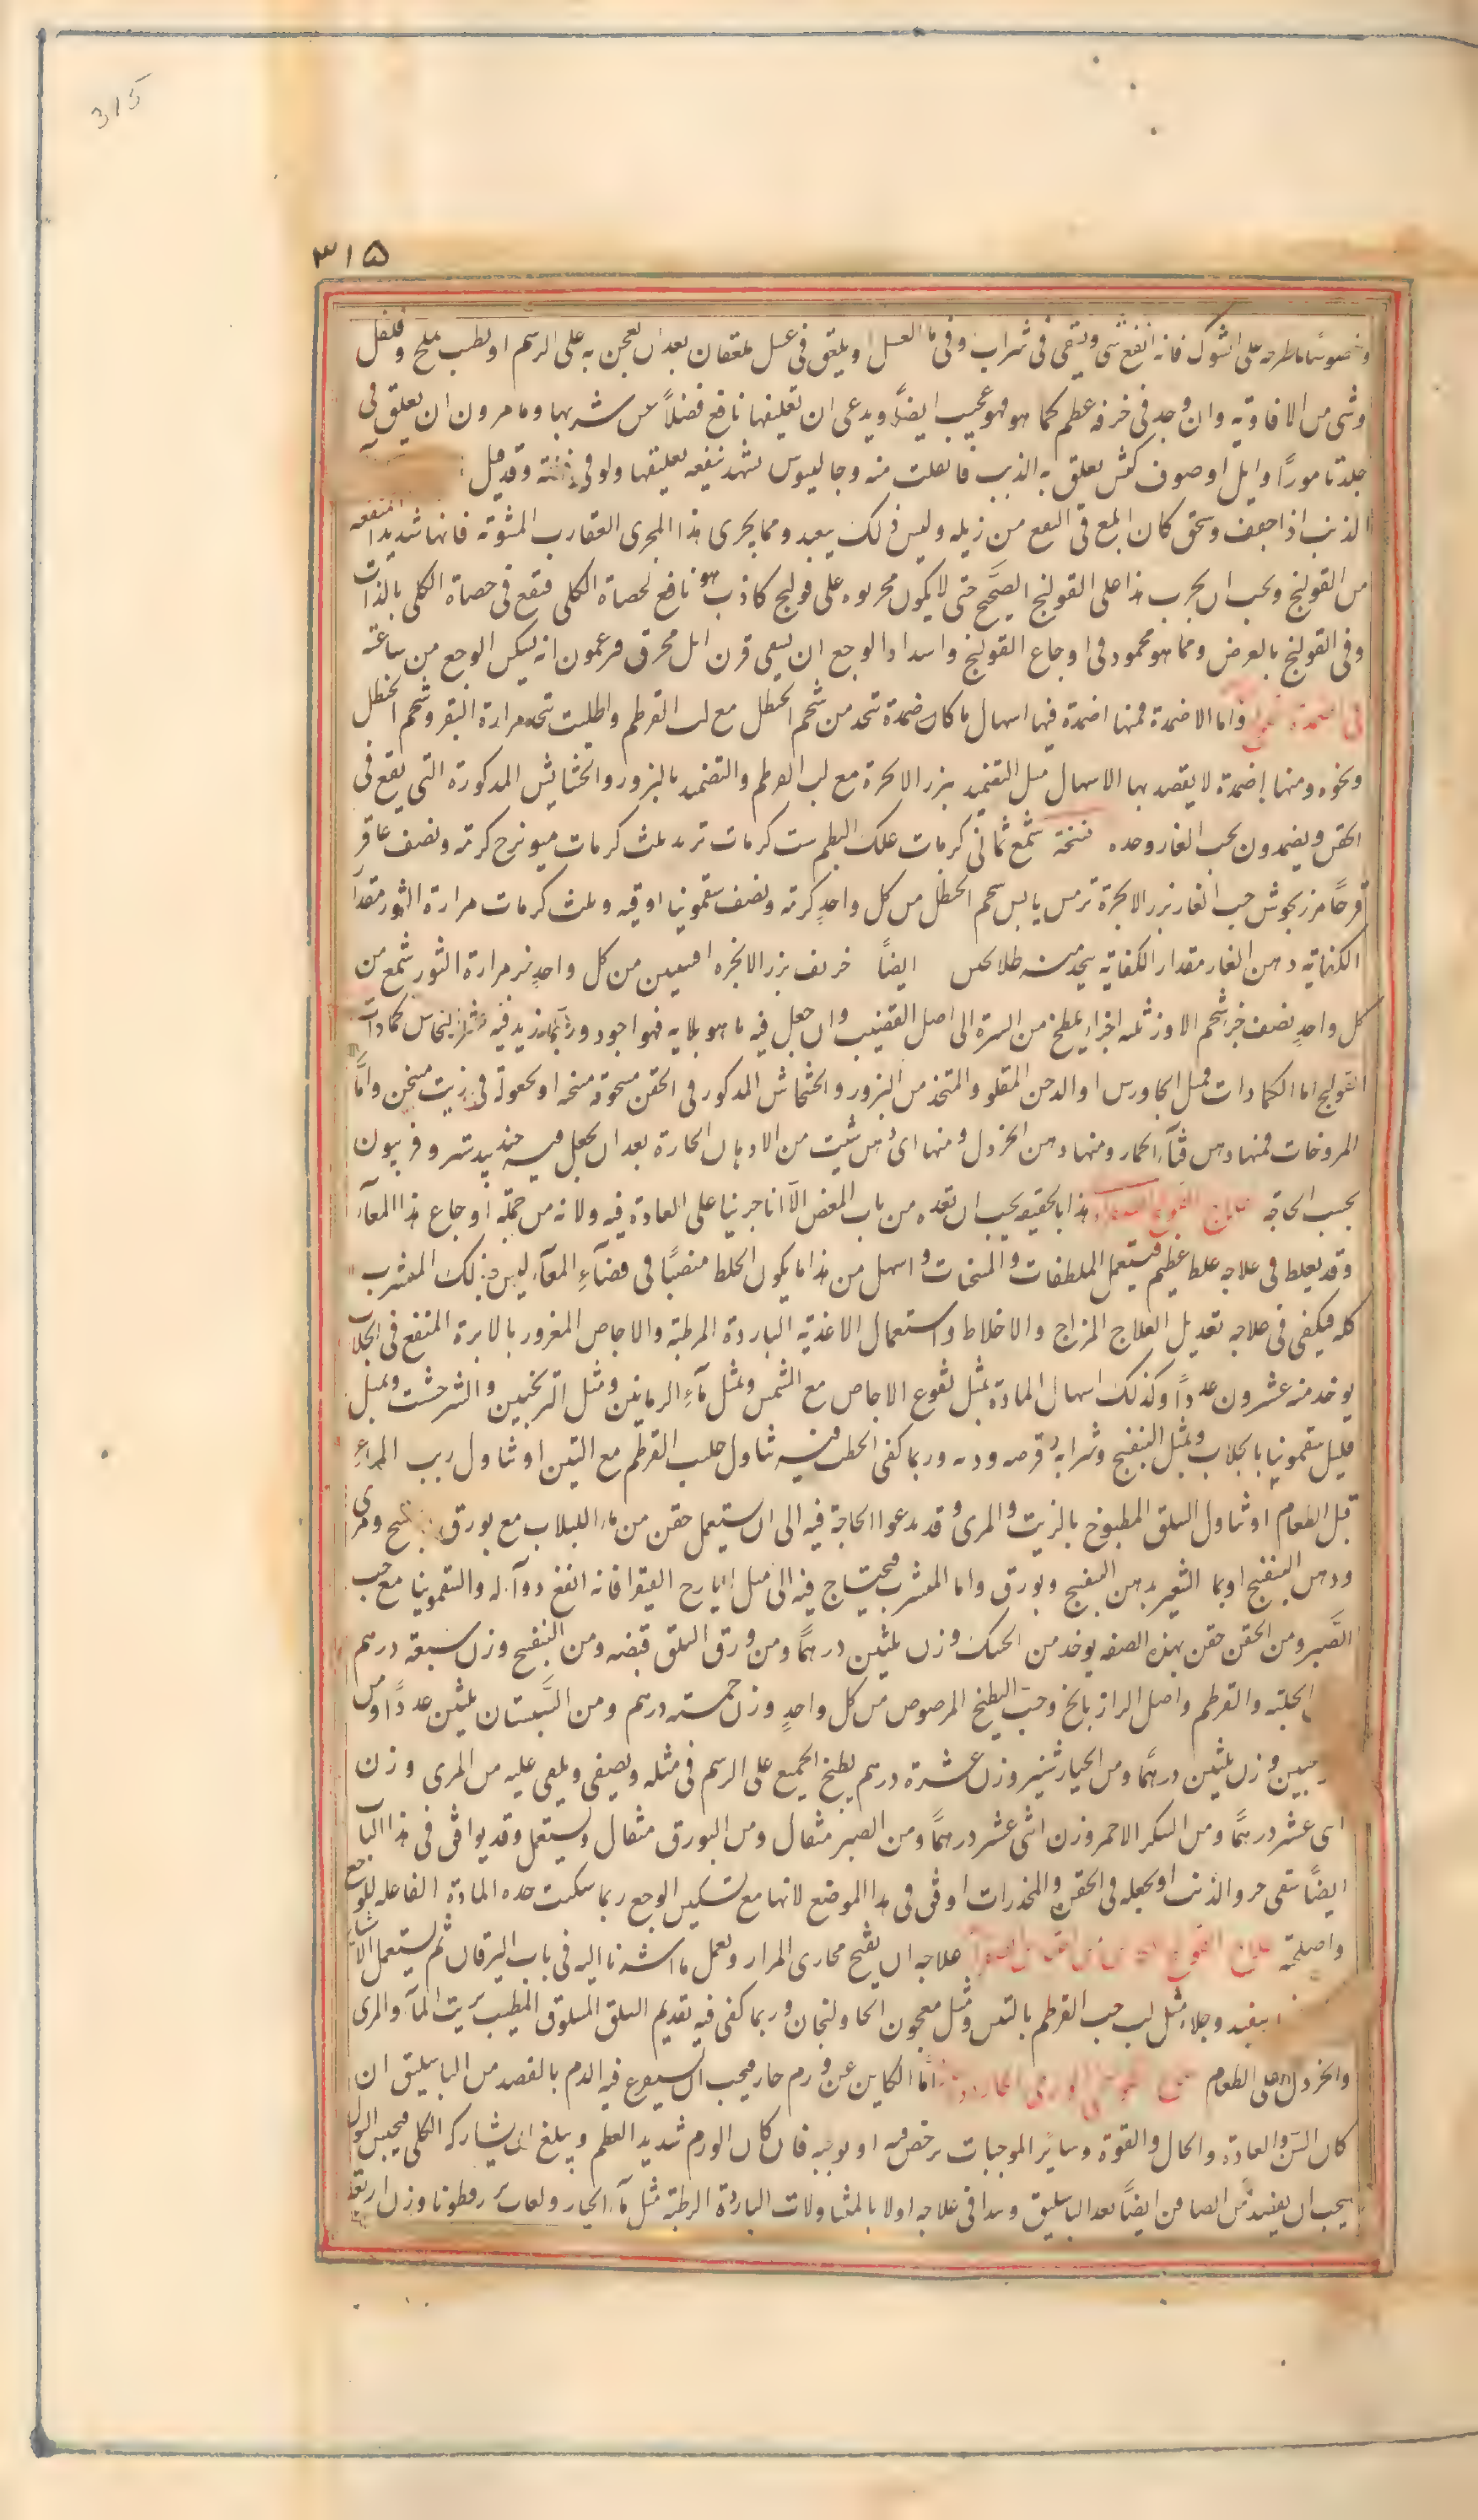 315
٣١٥
وخصوصًا ما طرحه على الشوك فانه انفع شى ويسقى فى شراب وفى ماء العسل او يلعق فى عسل ملعقتان بعد ان يعجن به على الرسم او يطيب بملح وفلفل
وشى من الافاويه وان وجد فى خرؤه عظم كما هو فهو عجيب ايضًا ويدعى ان تعليقها نافع فضلاً عن شربها ويامرون ان يعلق فى
جلد تامور او ايل او صوف كبش تعلق به الذئب فانفلت منه وجالينوس يشهد بنفع تعليقها ولو فى فضة وقد قيل
الذئب اذا جفف وسحق كان ابلغ فى النفع من زبله وليس ذلك ببعيد ومما يجرى هذا المجرى العقارب المشوية فانها شديدة المنفعة
من القولنج ويجب ان يجرب هذا على القولنج الصَّحيح حتى لا يكون مجربوه على قولنج كاذب هو نافع لحصاة الكلى فتقع فى حصاة الكلى بالذات
وفى القولنج بالعرض ومما هو محمود فى اوجاع القولنج واشتداد الوجع ان يسقى قرن ايل محرق فيزعمون انه يسكن الوجع من ساعته
فى اضمدة واما الاضمدة فمنها اضمدة فيها اسهال ما كان ضمدة تتخذ من شحم الحنظل مع لب القرطم واطليت تتخذ مرارة البقر وشحم الحنظل
ونحوه ومنها اضمدة لا يقصد بها الاسهال مثل التضميد ببزر الانجرة مع لب القرطم والتضميد بالبزور والحشايش المذكورة التى يقع فى
الحقن ويضمدون بحب الغار وحده نسخة شمع ثمانى كرمات علك البطم ست كرمات تربد ثلث كرمات ميويزج كرمة ونصف عاقر
قرحًا مرزنجوش حب الغار بزر الانجرة ترمس يابس شحم الحنظل من كل واحدٍ كرمة ونصف سقمونيا اوقيه وثلث كرمات مرارة الثور مقدار
الكفاية دهن الغار مقدار الكفاية يتخذ منه طلا ايضًا خربق بزر الانجره افسنتين من كل واحدٍ جزء مرارة الثور شمع من
كل واحدٍ نصف جزء شحم الاوز ثلثه اجزاء يلطخ من السرة الى اصل القضيب وان جعل فيه ما هو بلايه فهو اجود وربما زيد فيه كمادات
القولنج اما الكمادات فمثل الجاورس او الدخن المقلو والمتخذ من البزور والحشائش المذكور فى الحقن مسحوقة مسخنه او مجعولة فى زيت مسخن وامَّا
المروخات فمنها دهن قثآء الحمار ومنها دهن الخردل ومنها اى دهن شئت من الادهان الحارة بعد ان يجعل فيه جندبيدستر وفربيون
بحسب الحاجة علاج القولنج الصفراوى هذا بالحقيقه يجب ان تعده من باب المغص الا انا جرينا على العادة فيه ولانه من جملة اوجاع هذا المعآء
وقد يغلط فى علاجه غلط عظيم فيستعمل الملطفات والمسخنات واسهل من هذا ما يكون الخلط منصبًا فى فضآءِ المعآء ليس بذلك المتشرب
كله فيكفى فى علاجه تعديل العلاج المزاج والاخلاط واستعمال الاغذية الباردة المرطبة والاجاص المغزور بالابرة المنقع فى الجلاب
يوخذ منه عشرون عددًا وكذلك اسهال المادة بمثل نقوع الاجاص مع المشمس وبمثل مآءِ الرمانين ومثل الترنجبين والشرخشت ويمثل
قليل سقمونيا بالجلاب وبمثل البنفسج وشرابه وقرصه وربه وربما كفى الخطب فيه تناول حليب القرطم مع التين او تناول زيت المآءِ
قبل الطعام او تناول السلق المطبوخ بالزيت والمرى وقد يدعوا الحاجة فيه الى ان يستعمل حقن من ماء اللبلاب مع بورق وبنفسج ومرى
ودهن البنفسج او بماء الشعير بدهن البنفسج وبورق واما المتشرب فيحتاج فيه الى مثل ايارج الفيقرا فانه انفع دوآء له والسقمونيا مع حب
الصَّبر ومن الحقن حقن بهذه الصفه يوخذ من الحسك وزن ثلثين درهمًا ومن ورق السلق قبضه ومن البنفسج وزن سبعة درهم
الحلبة والقرطم واصل الرازيانج وحب البطيخ المرضوض من كل واحدٍ وزن خمسة درهم ومن السَّبستان ثلثين عددًا ومن
جبين وزن ثلثين درهمًا ومن الخيارشنبر وزن عشرة درهم يطبخ الجميع على الرسم فى مثله ويصفى ويلقى عليه من المرى وزن
اثنى عشر درهمًا ومن السكر الاحمر وزن اثنى عشر درهمًا ومن الصبر مثقال ومن البورق مثقال ويستعمل وقد يوافق فى هذا الباب
ايضًا سقى خرو الذئب او جعله فى الحقن والمخدرات اوفق فى هذا الموضع لانها مع تسكين الوجع ربما سكنت حده المادة الفاعله للوجع
واصلحته علاج القولنج علاجه ان يفتح مجارى المرار ويعمل ما اشرنا اليه فى باب اليرقان ثم يستعمل الاشياء
تنفيذ وجلاء مثل لب حب القرطم بالتين ومثل معجون الخاولنجان وربما كفى فيه تقديم السلق المسلوق المطيب بزيت المآء والمرى
والخردل على الطعام امَّا الكاين عن ورم حار فيجب ان يستفرغ فيه الدم بالفصد من الباسليق ان
كان السن والعادة والحال والقوة وساير الموجبات يرخص فيه او يوجبه فان كان الورم شديد العظم ويبلغ ان يشارك الكلى فيحبس البول
يجب ان يفصد من الصافن ايضًا بعد الباسليق ويبدا فى علاجه اولا بالمتناولات الباردة الرطبة مثل مآء الخيار ولعاب بزرقطونا وزن اربعة